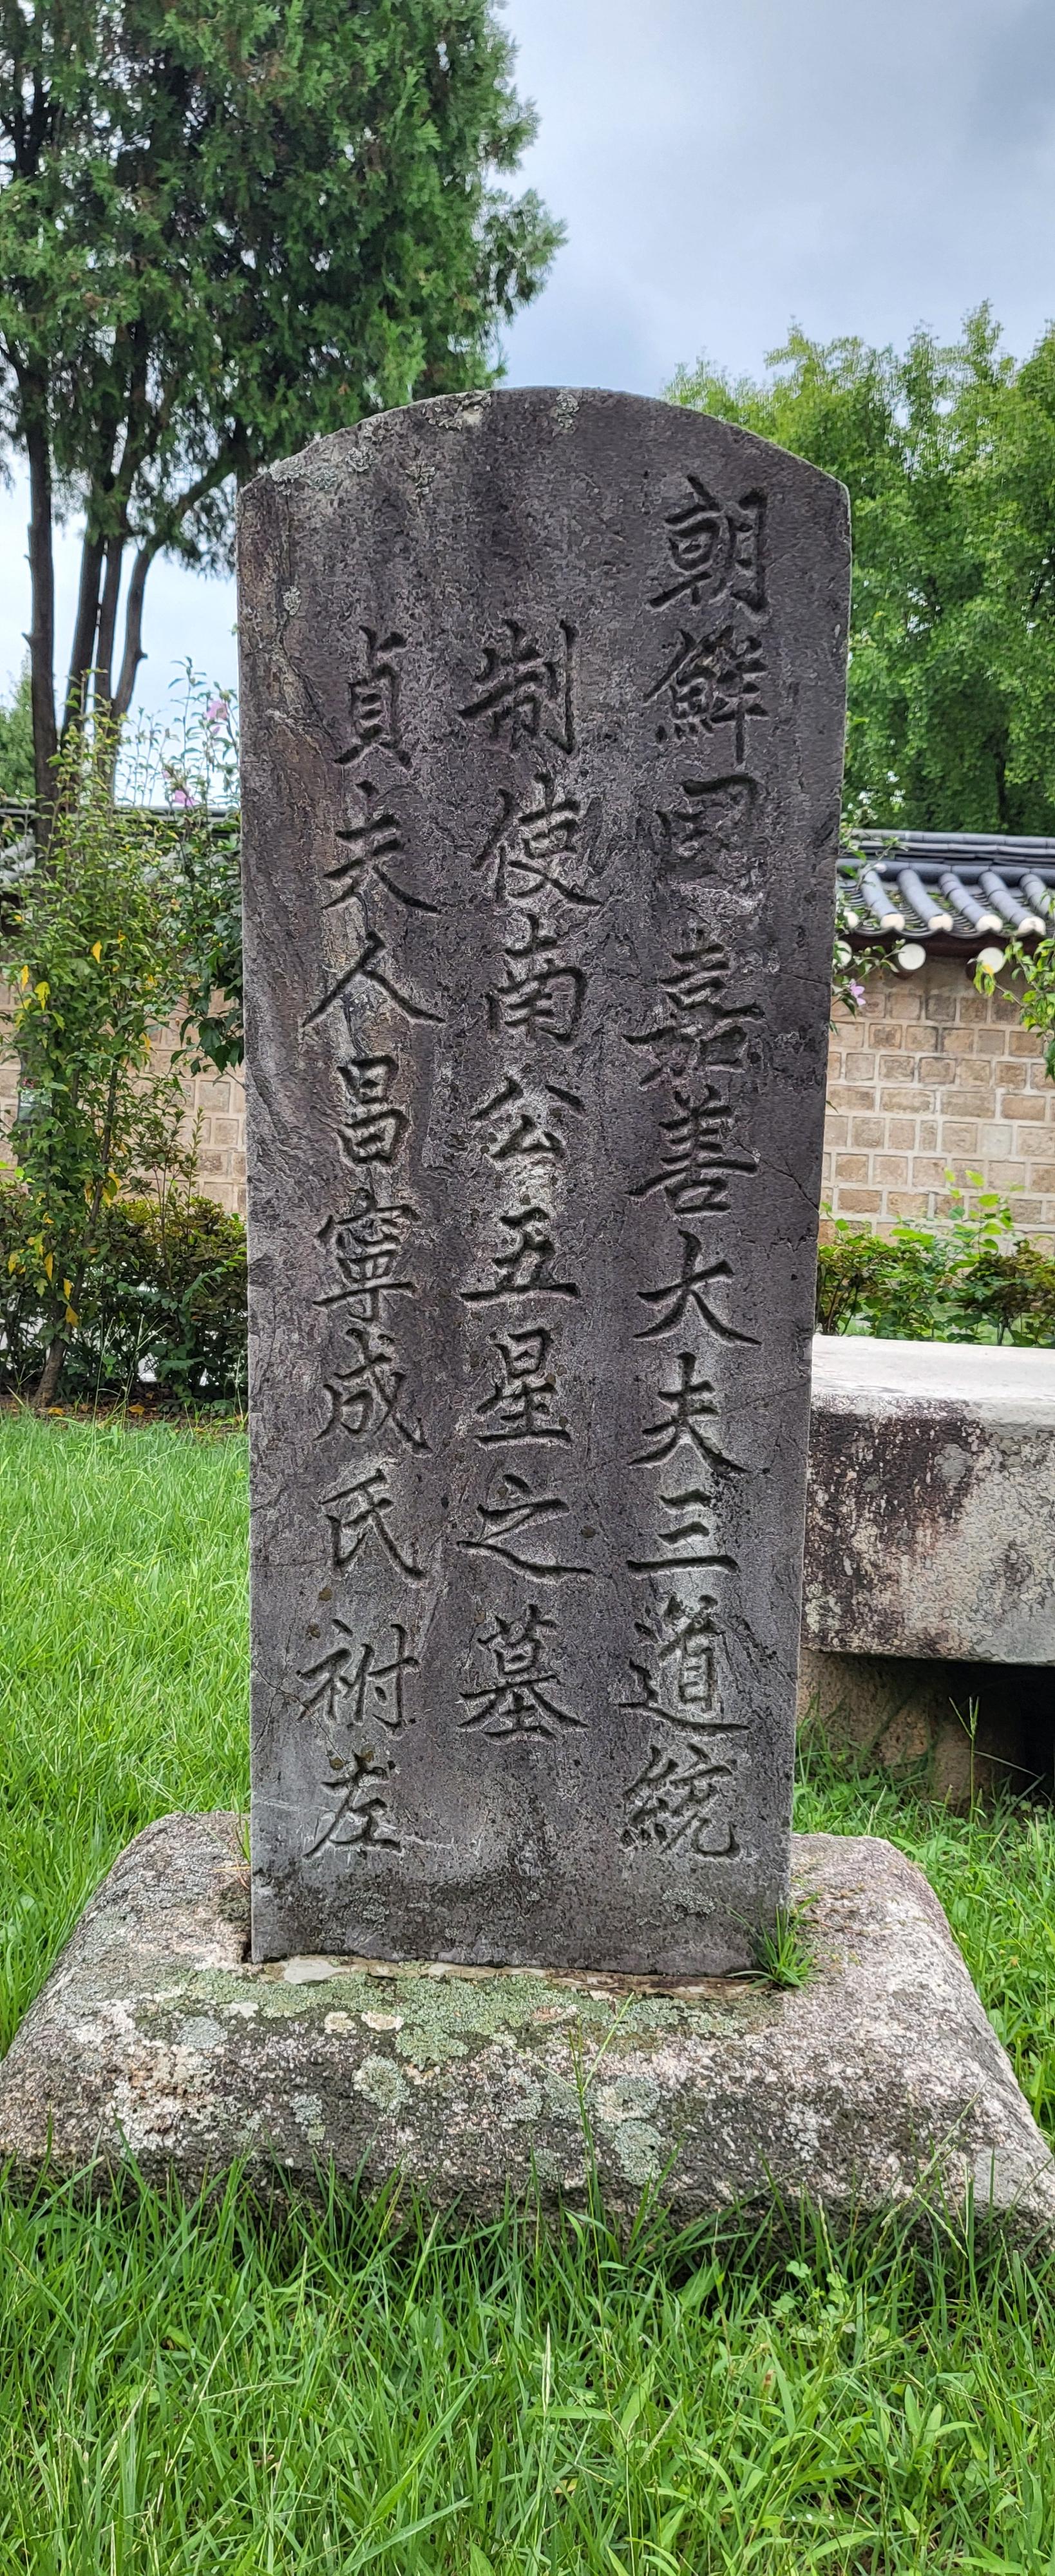 朝鮮國嘉善大夫三道統
制使南公五星之墓
貞夫人昌寧成氏祔左